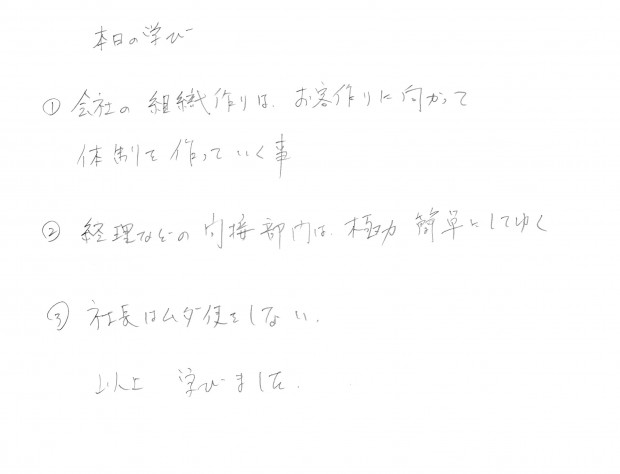 本日の学び
① 会社の組織作りは、お客作りに向かって
体制を作っていく事
② 経理などの間接部門は、極力簡単にしてゆく
③ 社長はムダ使をしない.
以上 学びました.